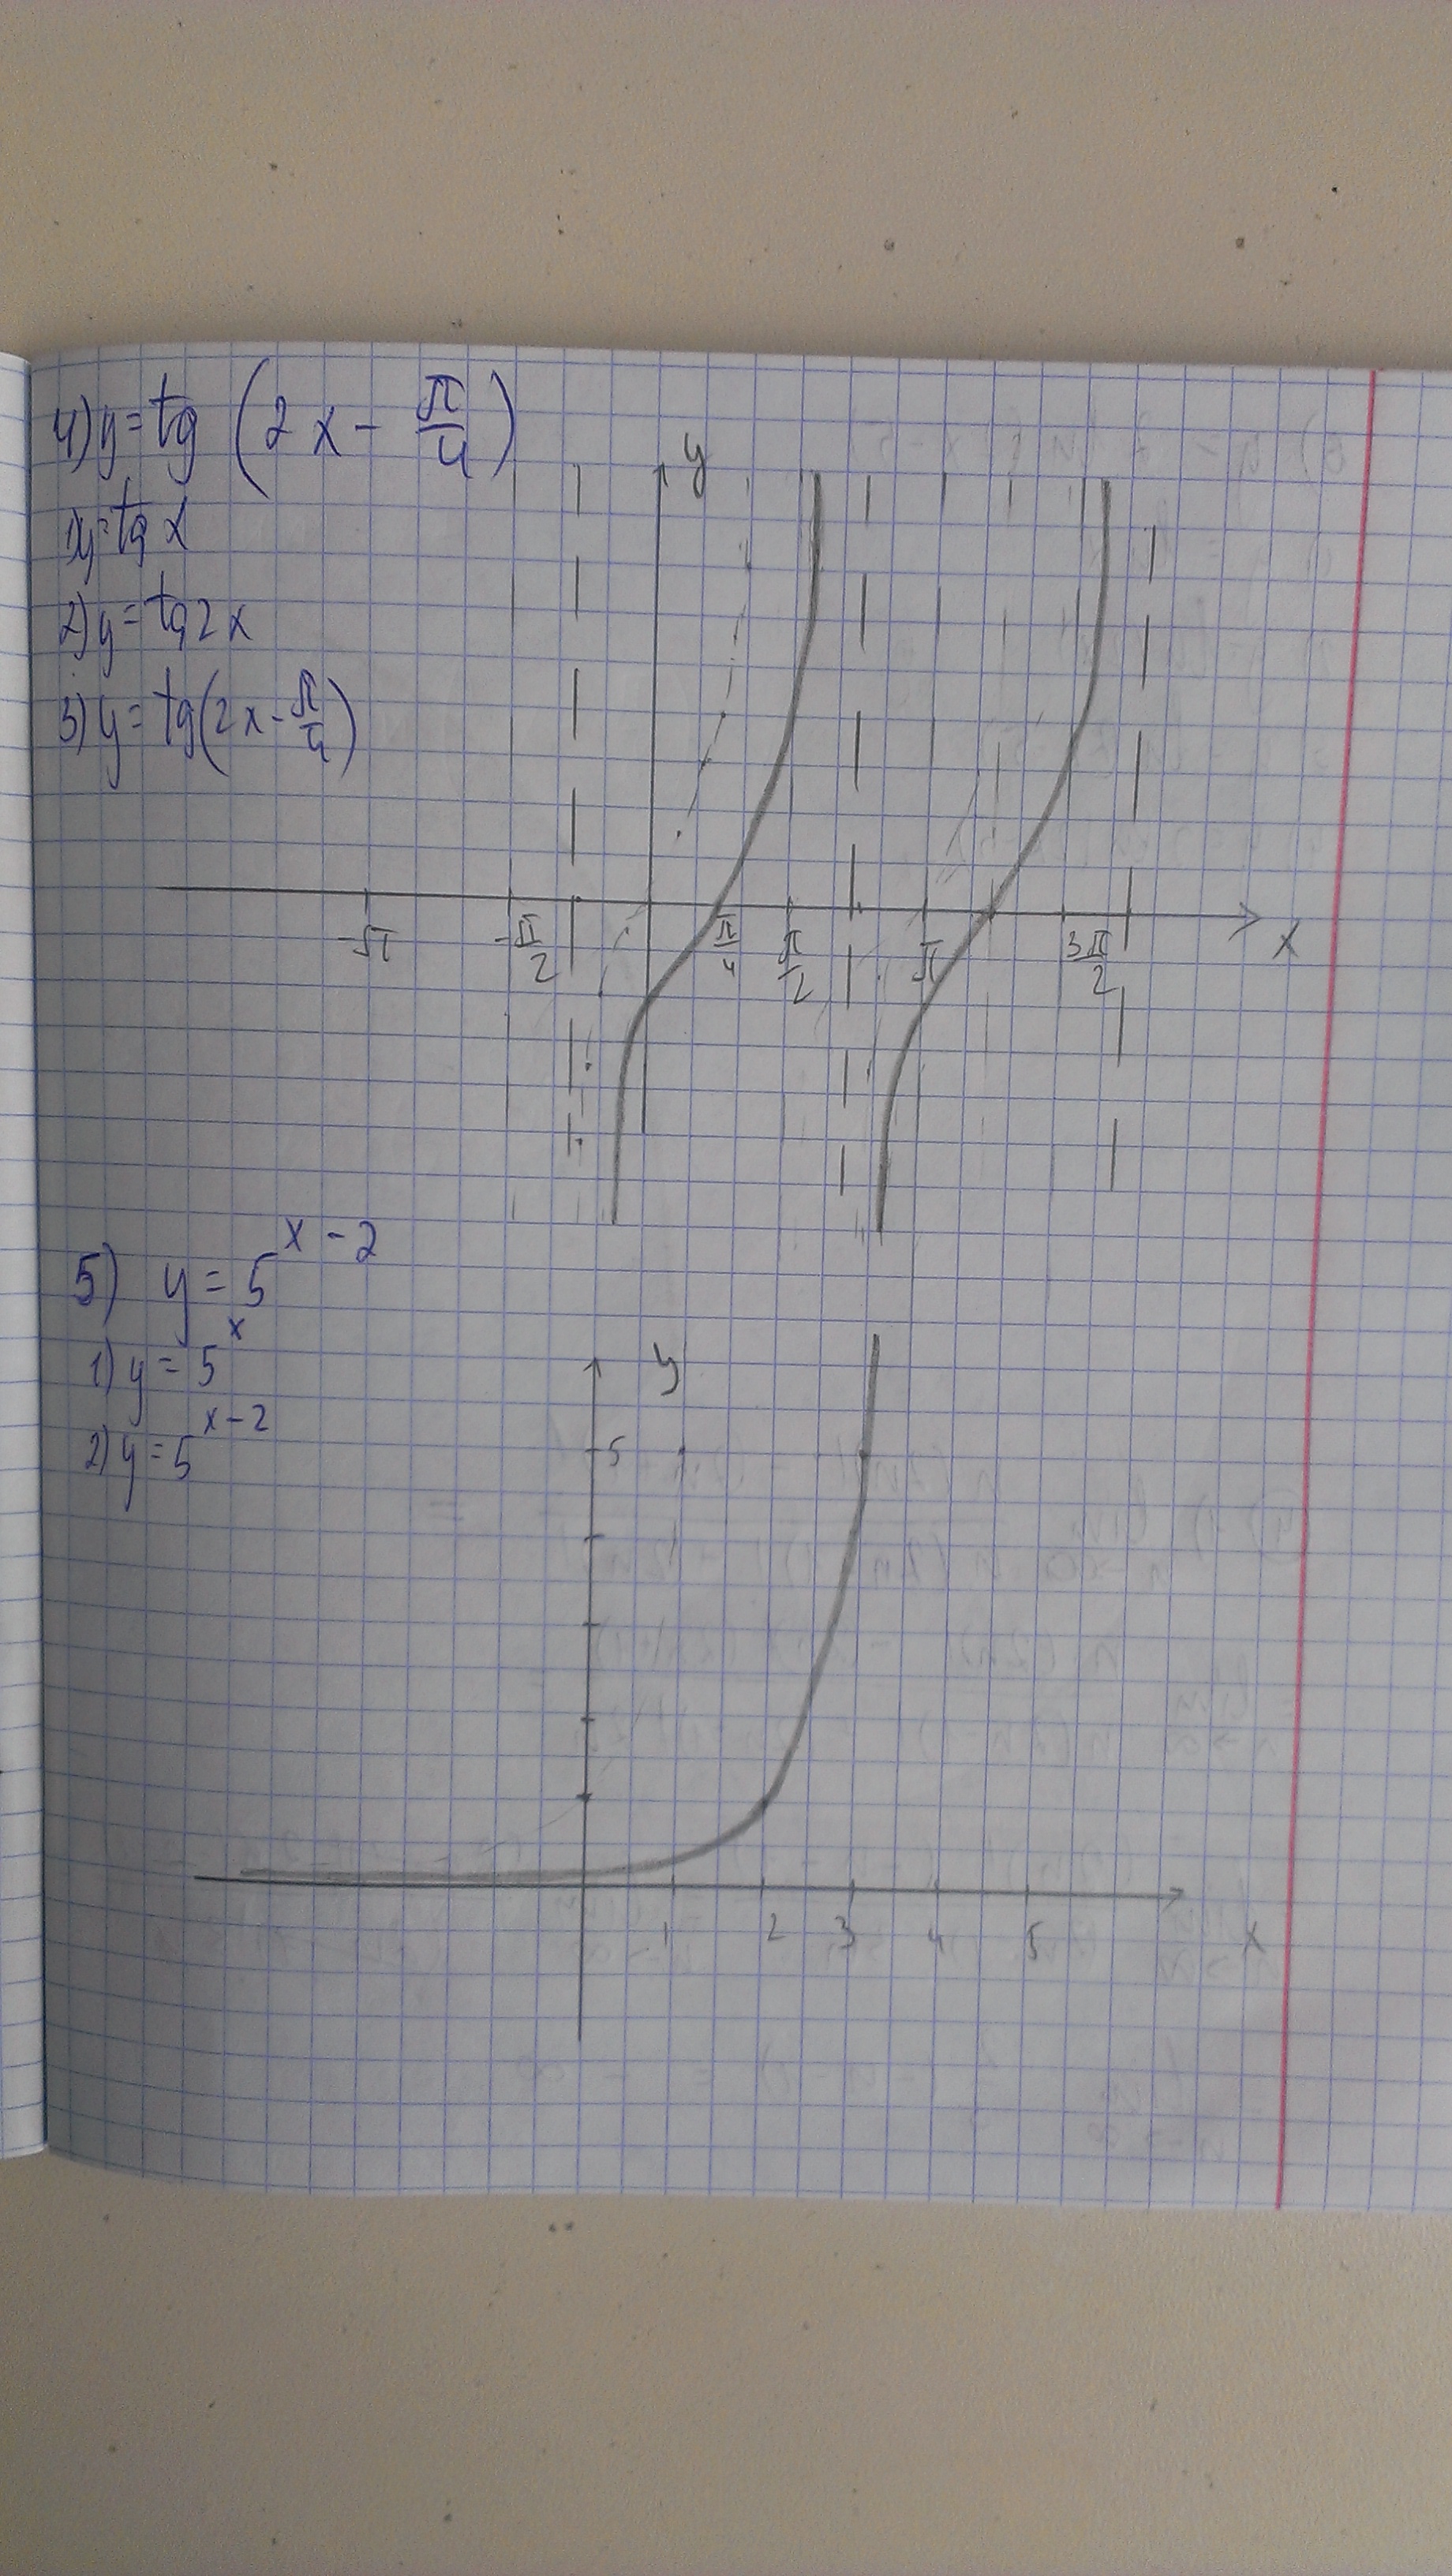 4) y = tg (2x - π/4)
1) y = tg x
2) y = tg 2x
3) y = tg(2x - π/4)
y
-π -π/2 π/4 π/2 π 3π/2 x
5) y = 5^(x-2)
1) y = 5^x
2) y = 5^(x-2)
y
5
1 2 3 4 5 x